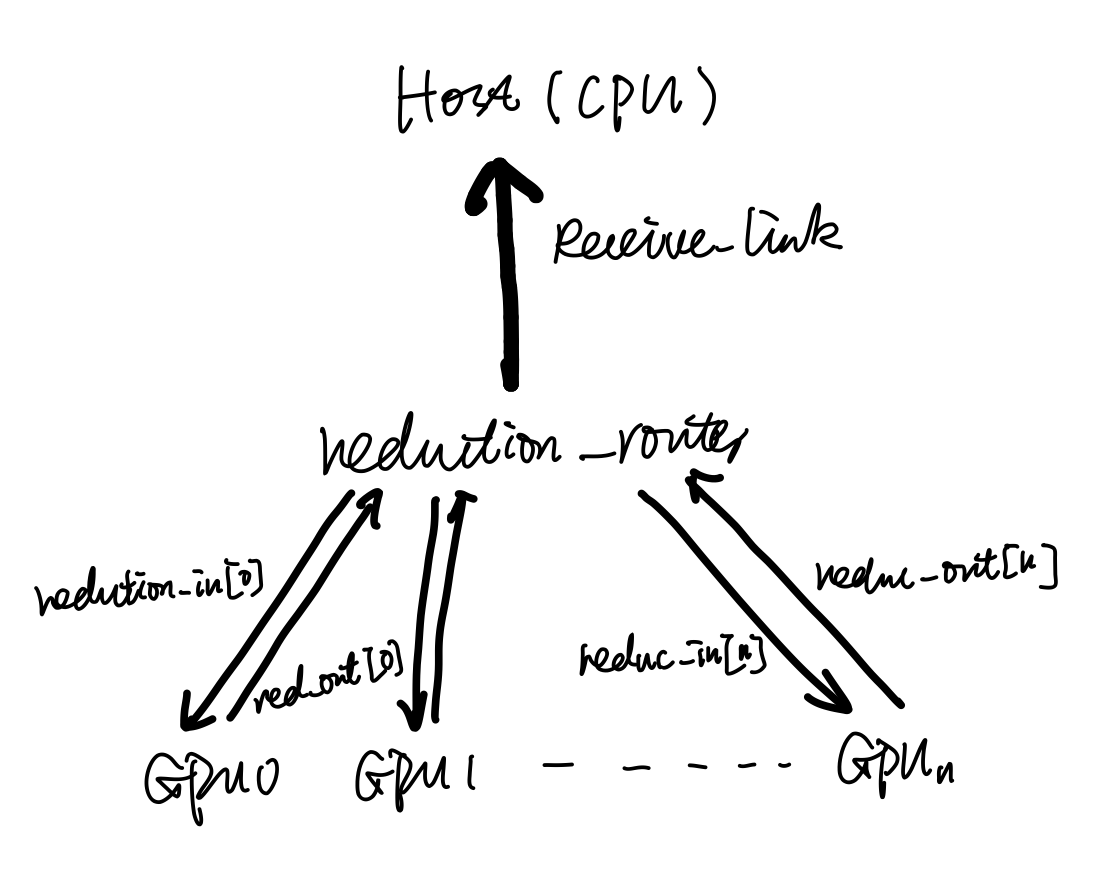 Host (CPU)
Receive_link
reduction_router
redution_in[0]
reduc_out[n]
red_out[0]
reduc_in[n]
GPU0 GPU1 - - - - - GPUn